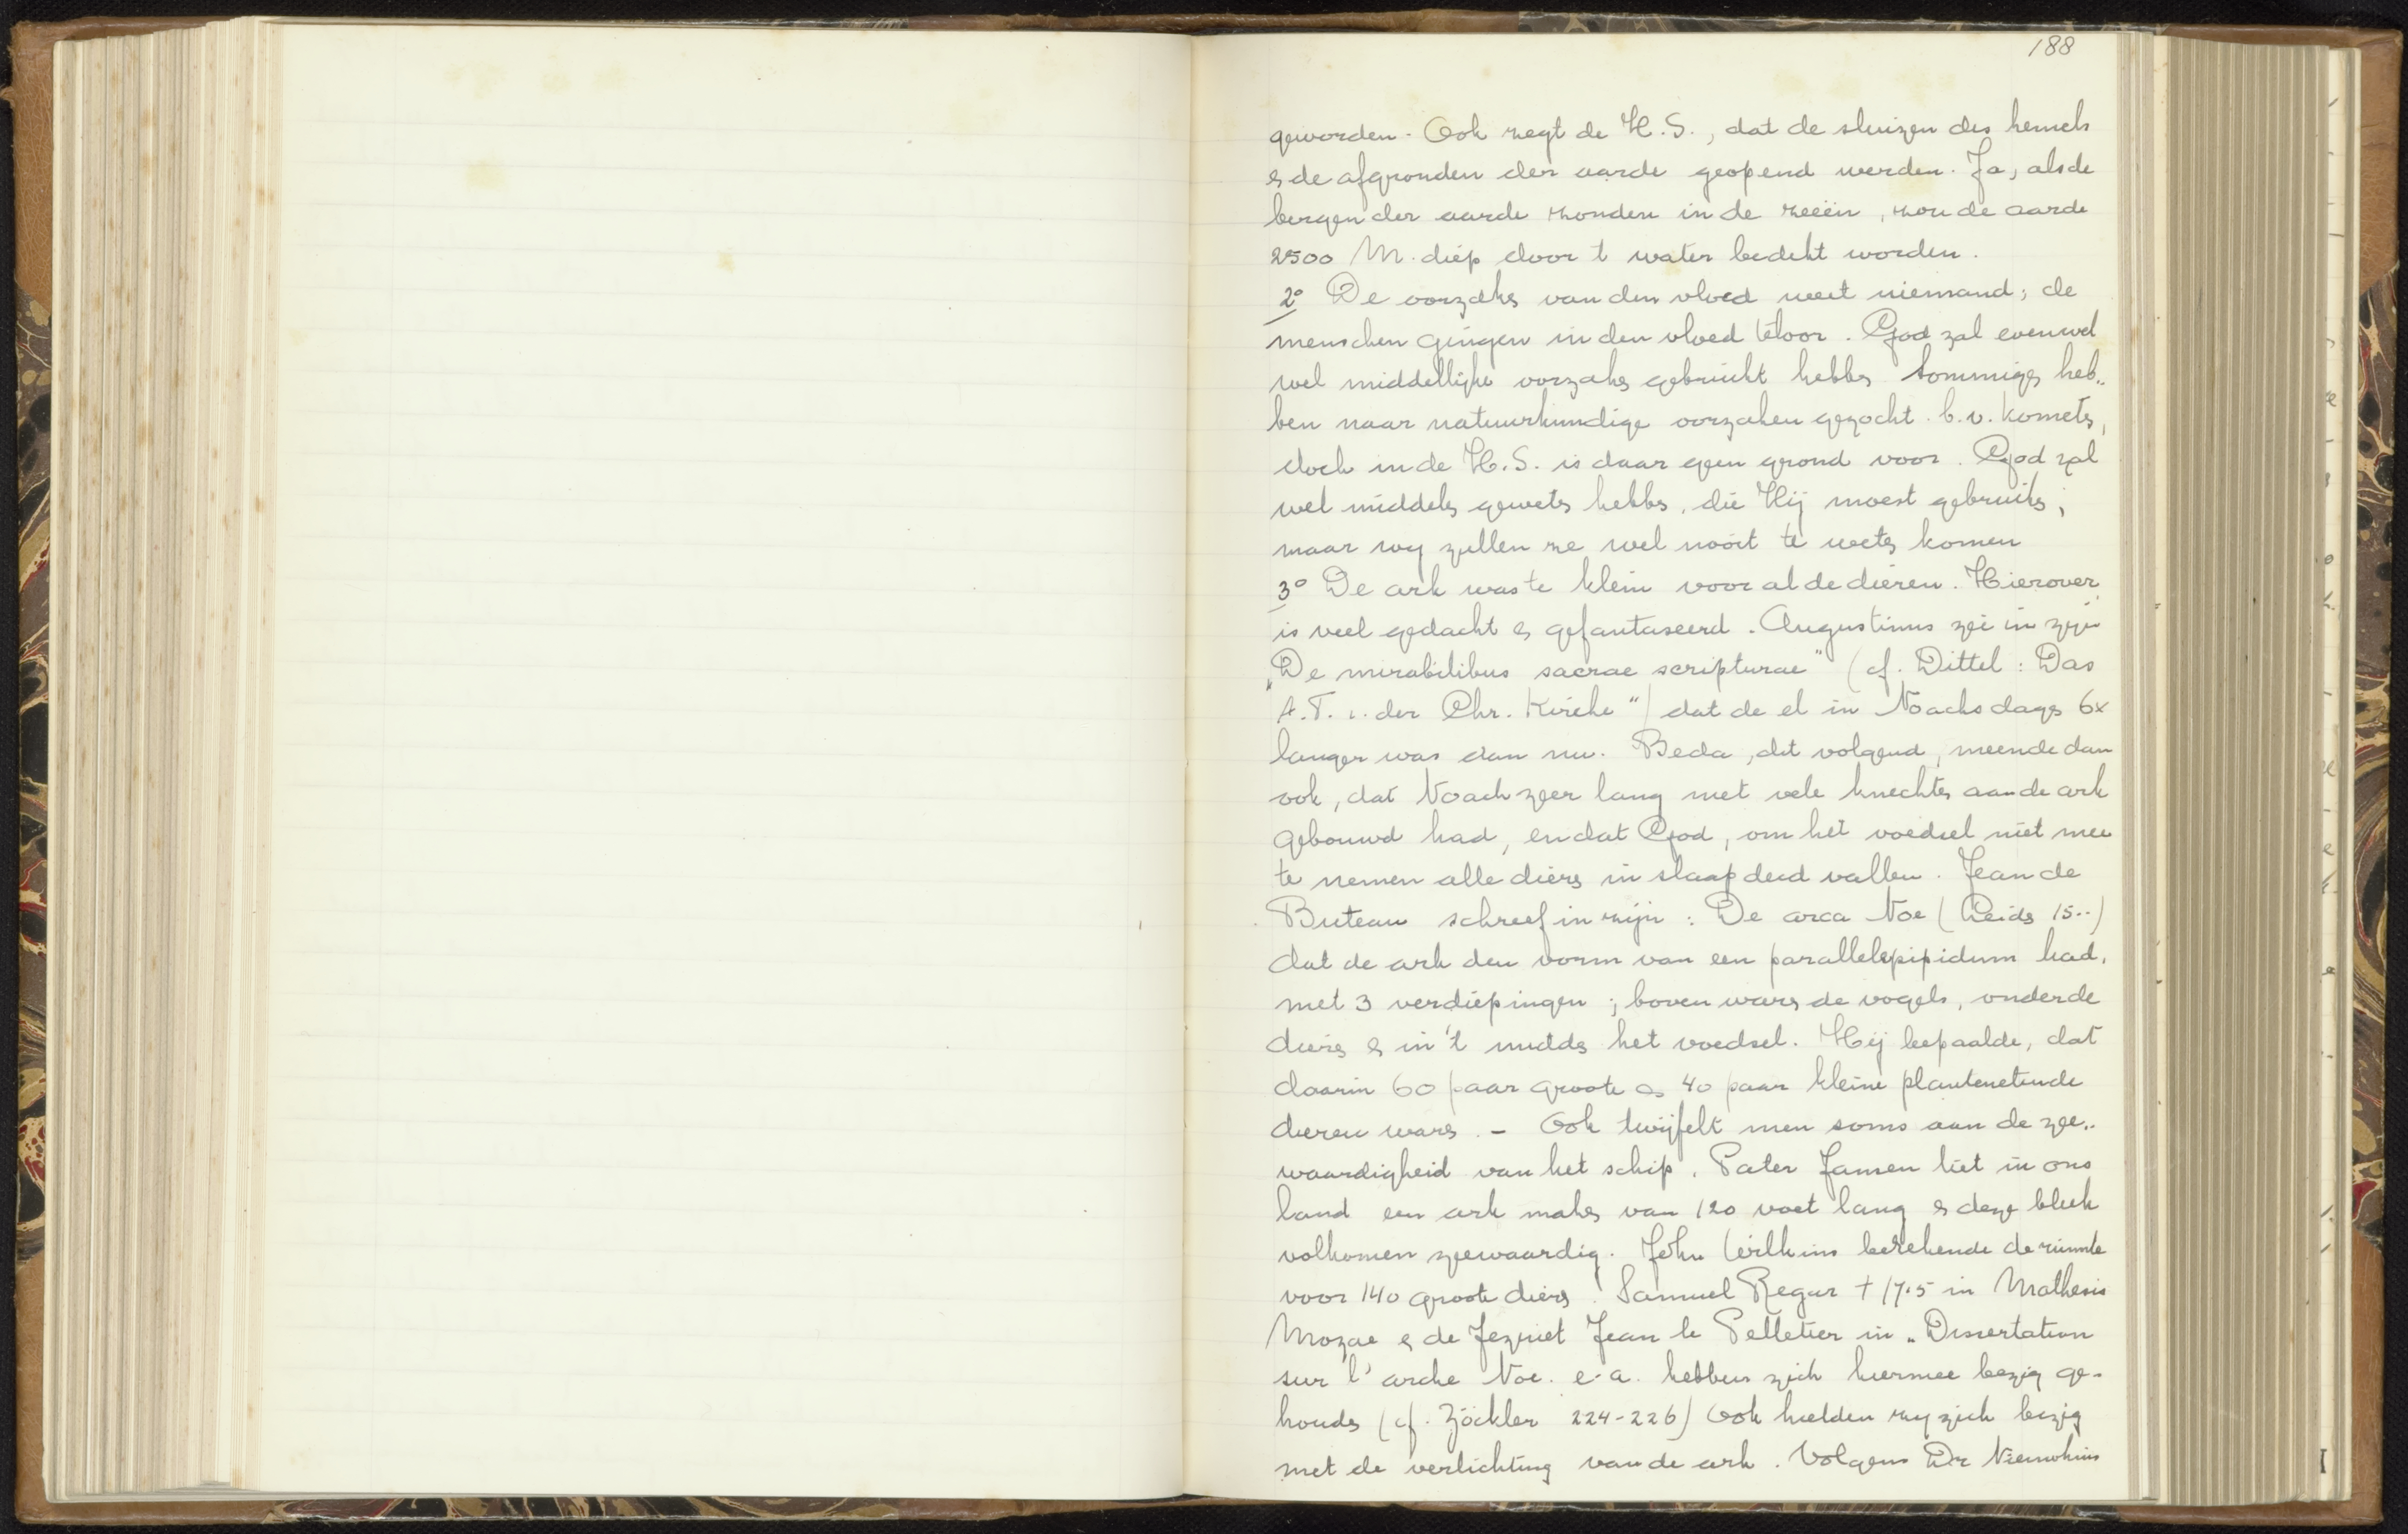 188
geworden. Ook zegt de H.S., dat de sluizen des hemels
& de afgronden der aarde geopend werden. Ja, als de
bergen der aarde stonden in de zeeën, zou de aarde
2500 M. diep door 't water bedekt worden.
2° De oorzaks van den vloed weet niemand; de
menschen gingen in den vloed teloor. God zal evenwel
wel middellijke oorzaks gebruikt hebbs Sommigs heb-
ben naar natuurkundige oorzaken gezocht. b.v. komets,
doch in de H.S. is daar geen grond voor. God zal
wel middels gewets hebbs, die Hij moest gebruiks,
maar wy zullen ze wel nooit te wets komen
3° De ark was te klein voor al de dieren. Hierover
is veel gedacht & gefantaseerd. Augustinus zei in zijn
„De mirabilibus sacrae scripturae" (cf. Dittel: Das
A.T. i. der Chr. Kirche") dat de el in Noachs dags 6x
langer was dan nu. Beda, dit volgend, meende dan
ook, dat Noach zeer lang met vele knechts aan de ark
gebouwd had, en dat God, om het voedsel niet mee
te nemen alle diers in slaap deed vallen. Jean de
Buteau schreef in zijn: De arca Noe (Leids 15..)
dat de ark den vorm van een parallelepipidum had,
met 3 verdiepingen; boven wars de vogels, onder de
diers & in 't midds het voedsel. Hij bepaalde, dat
daarin 60 paar groote & 40 paar kleine plantenetende
dieren wars. - Ook twijfelt men soms aan de zee-
waardigheid van het schip. Pater Jansen liet in ons
land een ark maks van 120 voet lang & deze bleek
volkomen zeewaardig. John Wilkins berekende de ruimte
voor 140 groote diers. Samuel Regur † 17.5 in Mathesis
Mozae & de Jezuiet Jean le Pelletier in „Dissertation
sur l'arche Noe. e.a. hebben zich hiermee bezig ge-
houds (cf. Zöckler 224-226) Ook hielden zy zich bezig
met de verlichting van de ark. Volgens Dr